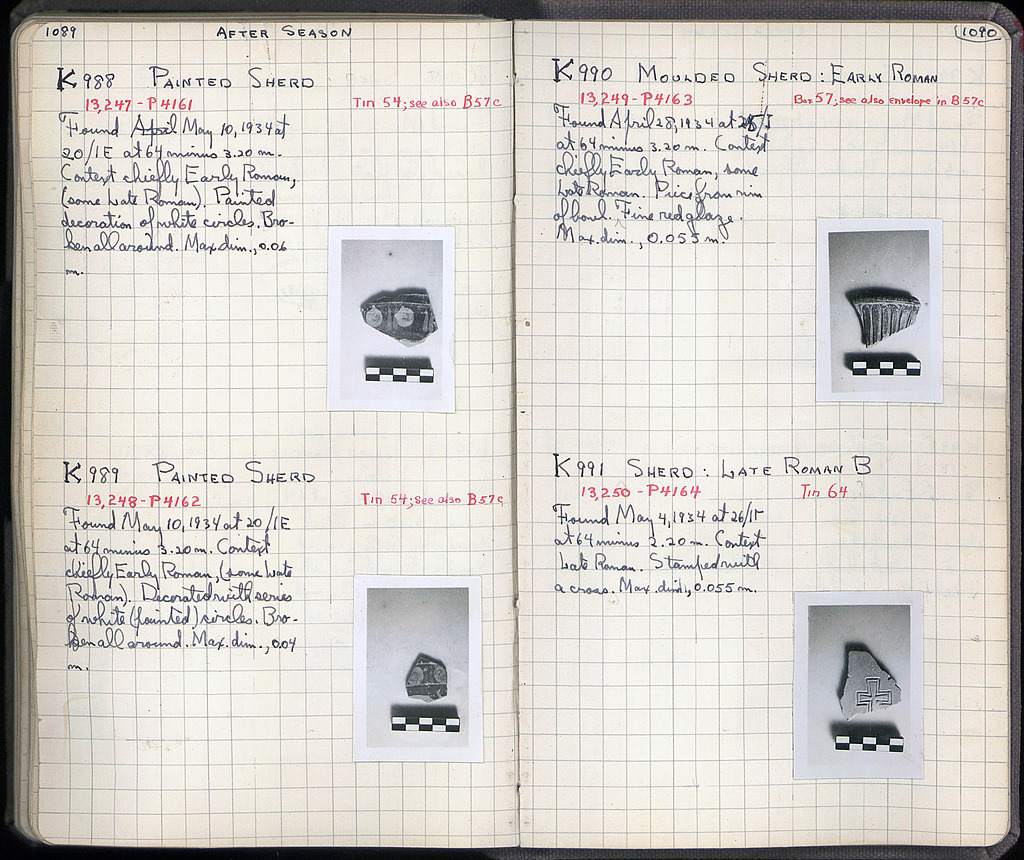 1089
AFTER SEASON
K 988 PAINTED SHERD
13,247 - P4161
Tin 54; see also B57c
Found April May 10, 1934 at
20/IE at 64 minus 3.20 m.
Context chiefly Early Roman,
(some Late Roman). Painted
decoration of white circles. Bro-
ken all around. Max. dim., 0.06
m.
K 989 PAINTED SHERD
13,248 - P4162
Tin 54; see also B57c
Found May 10, 1934 at 20/IE
at 64 minus 3.20 m. Context
chiefly Early Roman, (some Late
Roman). Decorated with series
of white (painted) circles. Bro-
ken all around. Max. dim., 0.04
m.
1090
K 990 MOULDED SHERD: EARLY ROMAN
13,249 - P4163
Box 57; see also envelope in B57c
Found April 28, 1934 at
at 64 minus 3.20 m. Context
chiefly Early Roman, some
Late Roman. Piece from rim
of bowl. Fine red glaze.
Max. dim., 0.055 m.
K 991 SHERD: LATE ROMAN B
13,250 - P4164
Tin 64
Found May 4, 1934 at
at 64 minus 2.20 m. Context
Late Roman. Stamped with
a cross. Max. dim., 0.055 m.